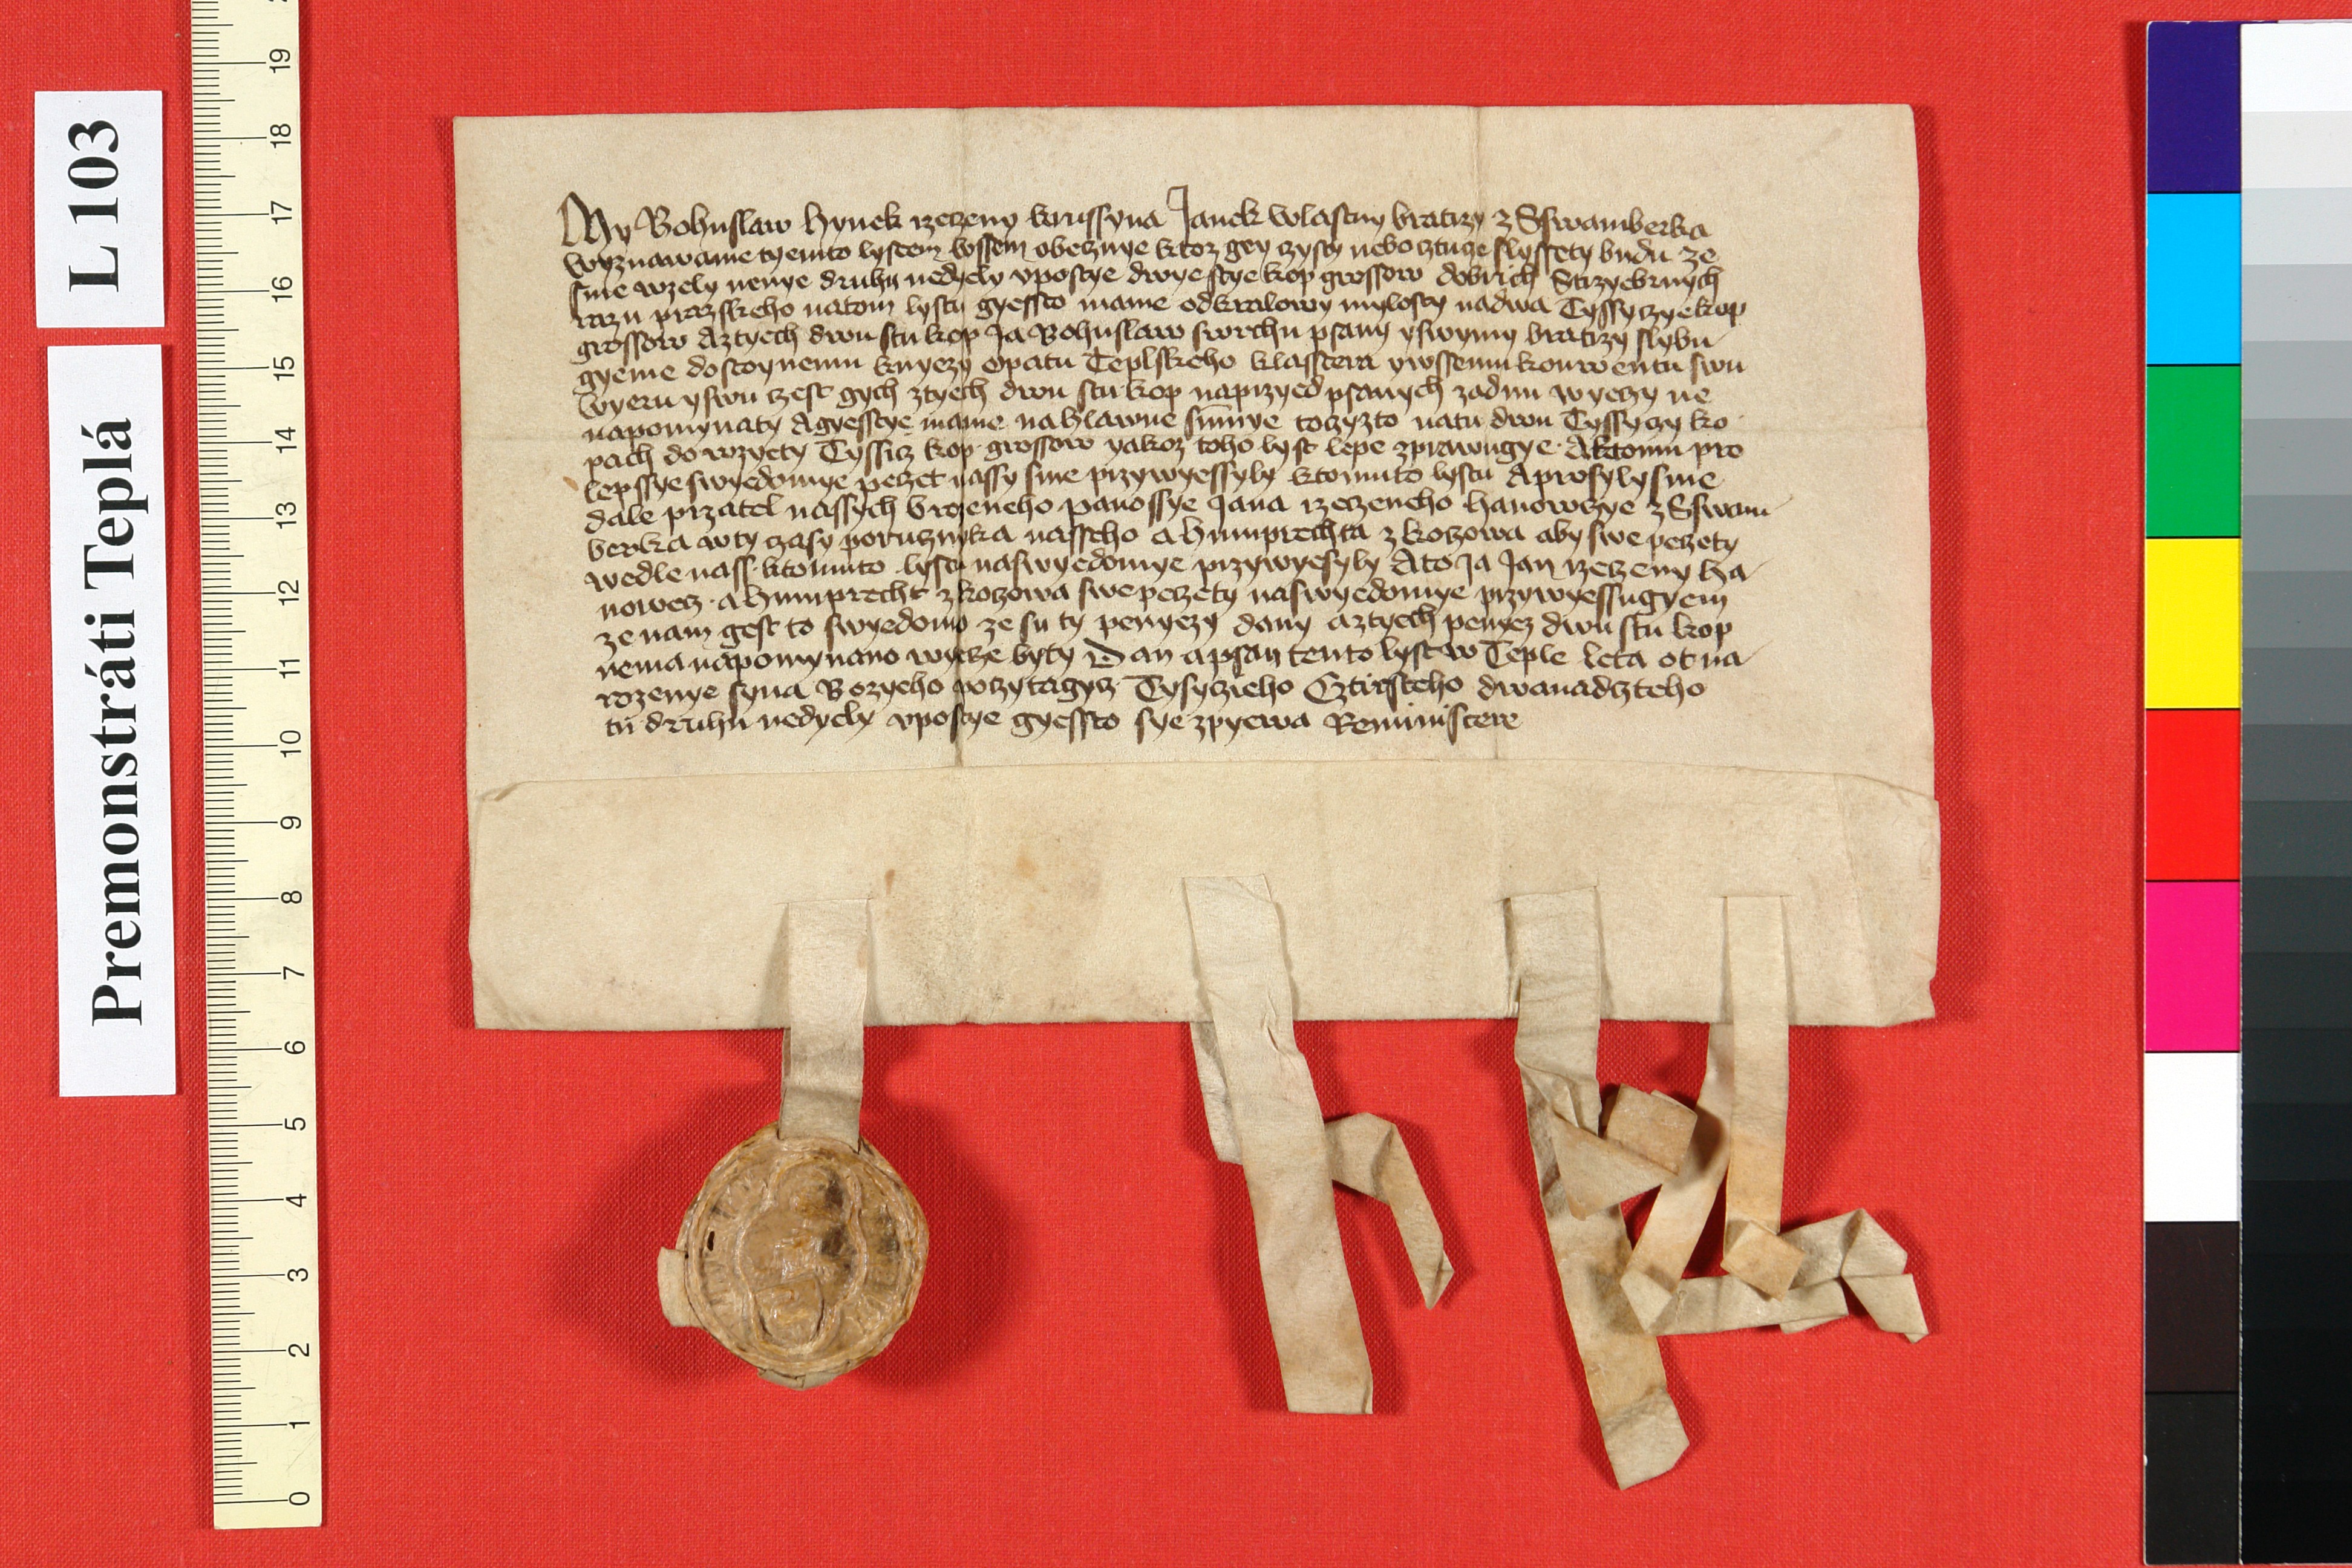 L 103
Premonstráti Teplá
My Bohuslaw hynek rzeczeny krussyna Janek wlastny bratrzy z Sswamberka
wyznawame tyemto lystem wssem obecznye ktoz gey czysty nebo cztucze slyssety budu ze
sme wzely nenye druhu nedyely vpostye dwye stye kop grossow dobrich Strzyebrnych
razu prazskeho natom lystu gyessto mame odkralowy mylosty nadwa Tyssyczye kop
grossow Aztyech dwu stu kop Ja Bohuslaw swrchu psany yswymy bratrzy slybu
gyeme dostoynemu knyezy opatu Teplskeho klasstera ywssemu konwentu swu
wyeru yswu czest gych ztyech dwu stu kop naprzyed psanych zadnu wyeczy ne
napomynaty Agyesstye mame nahlawne summye toczyzto natu dwu Tyssyczy ko
pach dowzyety Tyssicz kop grossow yakoz toho lyst lepe zprawugye Aktomu pro
lepssye swyedomye peczet nassy sme przywyessyly ktomuto lystu Aprosylysme
dale przatel nassych vrozeneho panossye Jana rzeczeneho hanowczye z Sswam
berka wty czasy porucznyka nasseho a humprechta z koczowa aby swe peczety
wedle nass ktomuto lystu naswyedomye przywyesyly Ato Ja Jan rzeczeny ha
nowecz a humprecht zkoczowa swe peczety naswyedomye przywyessugyem
ze nam gest to swyedomo ze su ty penyezy dany aztyech penyez dwu stu kop
nema napomynano wyecze byty Dan apsan tento lyst w Teple leta ot na
rozenye syna Bozyeho poczytagycz Tysyczieho Cztirsteho dwanadczteho
tu druhu nedyely vpostye gyessto sye zpyewa Reminiscere
19
18
17
16
15
14
13
12
11
10
9
8
7
6
5
4
3
2
1
0